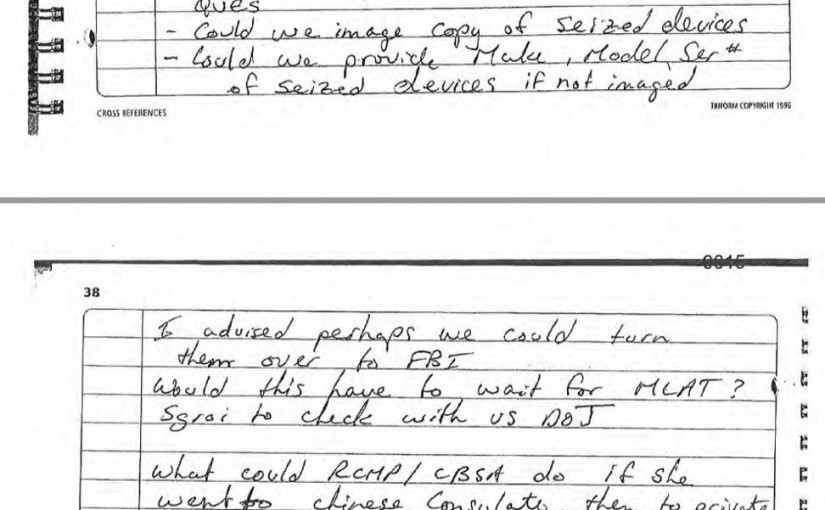 Ques
- Could we image copy of seized devices
- Could we provide Make, Model, Ser #
of seized devices if not imaged
CROSS REFERENCES
TRIFORM COPYRIGHT 1996
0015
38
I advised perhaps we could turn
them over to FBI
Would this have to wait for MLAT?
Sgroi to check with US DOJ
What could RCMP/CBSA do if she
went to chinese Consulate, then to private